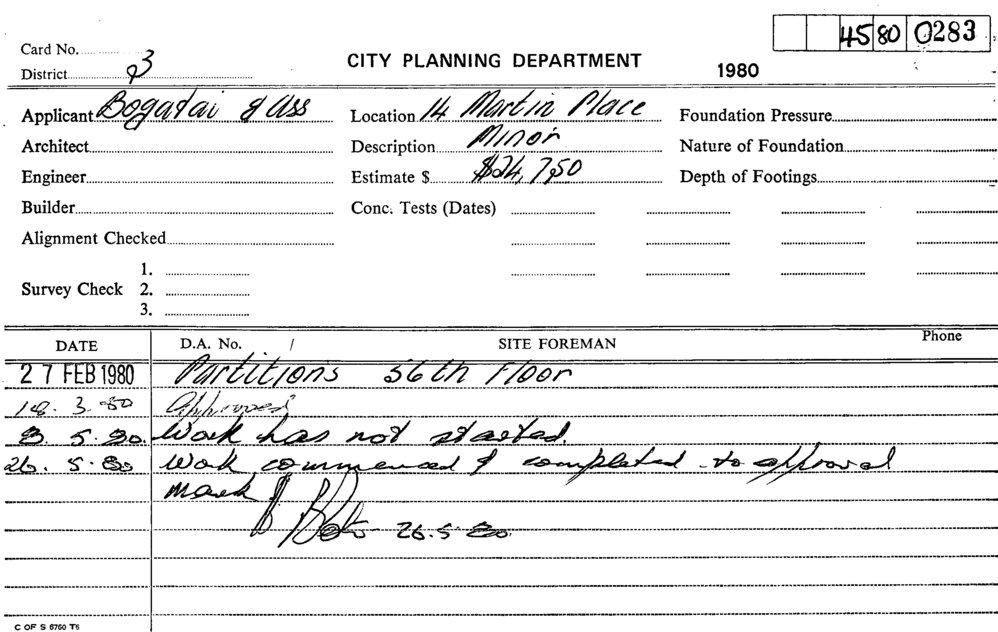 45 80 0283
Card No.
District 3
CITY PLANNING DEPARTMENT
1980
Applicant Bogatai & Ass
Location 14 Martin Place
Foundation Pressure
Architect
Description Minor
Nature of Foundation
Engineer
Estimate $ $24,750
Depth of Footings
Builder
Conc. Tests (Dates)
Alignment Checked
Survey Check 1.
2.
3.
DATE D.A. No. / SITE FOREMAN Phone
27 FEB 1980 Partitions 56th Floor
18. 3. 80 Approved
8. 5. 80. Work has not started.
26. 5. 80 Work commenced & completed to approval
mark
26.5.80.
C OF S 6750 T6